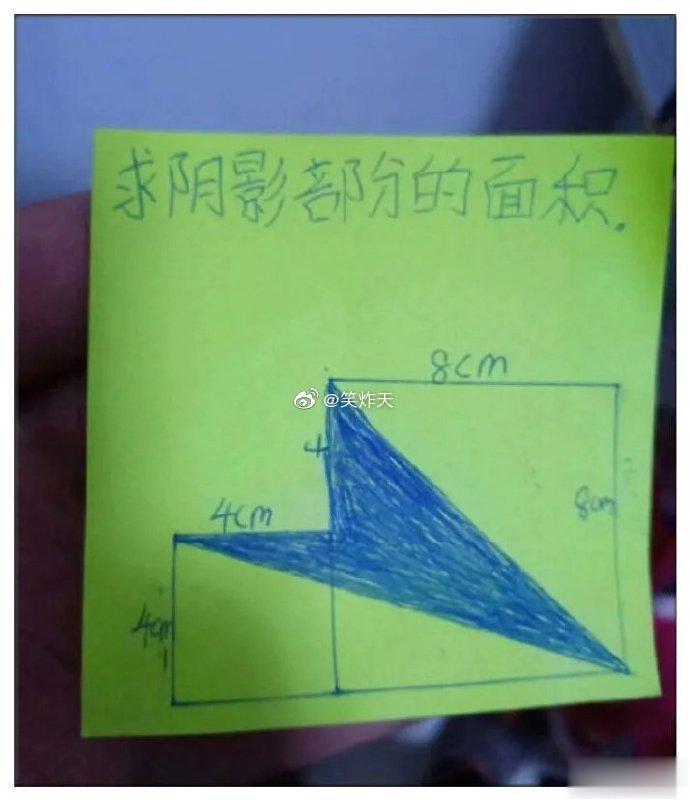 求阴影部分的面积.
8cm
@笑炸天
4
8cm
4cm
4cm